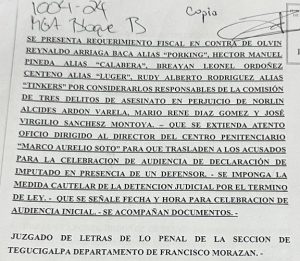 1004-24
Copia
MGA Bloque B
SE PRESENTA REQUERIMIENTO FISCAL EN CONTRA DE OLVIN
REYNALDO ARRIAGA BACA ALIAS "PORKING", HECTOR MANUEL
PINEDA ALIAS "CALABERA", BREAYAN LEONEL ORDOÑEZ
CENTENO ALIAS "LUGER", RUDY ALBERTO RODRIGUEZ ALIAS
"TINKERS" POR CONSIDERARLOS RESPONSABLES DE LA COMISIÓN
DE TRES DELITOS DE ASESINATO EN PERJUICIO DE NORLIN
ALCIDES ARDON VARELA, MARIO RENE DIAZ GOMEZ Y JOSÉ
VIRGILIO SANCHESZ MONTOYA. — QUE SE EXTIENDA ATENTO
OFICIO DIRIGIDO AL DIRECTOR DEL CENTRO PENITENCIARIO
"MARCO AURELIO SOTO" PARA QUE TRASLADEN A LOS ACUSADOS
PARA LA CELEBRACION DE AUDIENCIA DE DECLARACIÓN DE
IMPUTADO EN PRESENCIA DE UN DEFENSOR. - SE IMPONGA LA
MEDIDA CAUTELAR DE LA DETENCION JUDICIAL POR EL TERMINO
DE LEY. - QUE SE SEÑALE FECHA Y HORA PARA CELEBRACION DE
AUDIENCIA INICIAL. - SE ACOMPAÑAN DOCUMENTOS. -
JUZGADO DE LETRAS DE LO PENAL DE LA SECCION DE
TEGUCIGALPA DEPARTAMENTO DE FRANCISCO MORAZAN. -